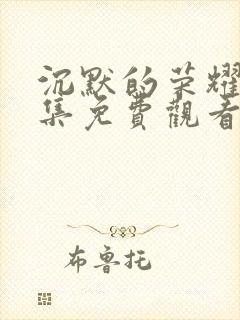 沉默的荣耀
集免費觀看
布鲁托